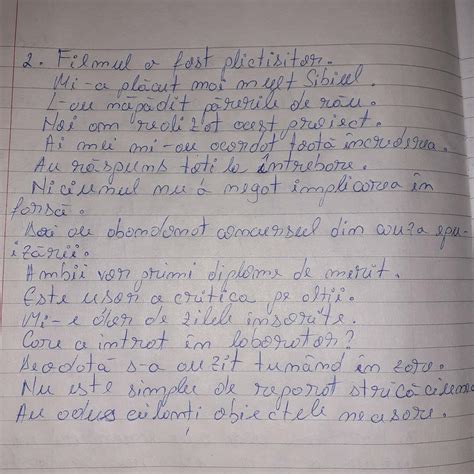 2. Filmul a fost plictisitor.
Mi-a plăcut mai mult Sibiul.
L-au năpădit părerile de rău.
Noi am realizat acest proiect.
Ai mei mi-au acordat toată încrederea.
Au răspuns toți la întrebare.
Niciunul nu a negat implicarea în
forță.
Doi au abandonat concursul din cauza epu-
izării.
Ambii vor primi diplome de merit.
Este ușor a critica pe alții.
Mi-e dor de zilele însorite.
Care a intrat în laborator?
Deodată s-a auzit tunând în zare.
Nu este simplu de reparat stricăciunea
Au adus ceilalți obiectele necesare.